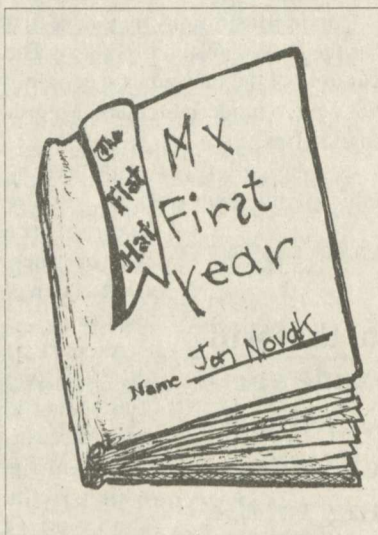 The
Flat
Hat
My
First
Year
Name Jon Novak